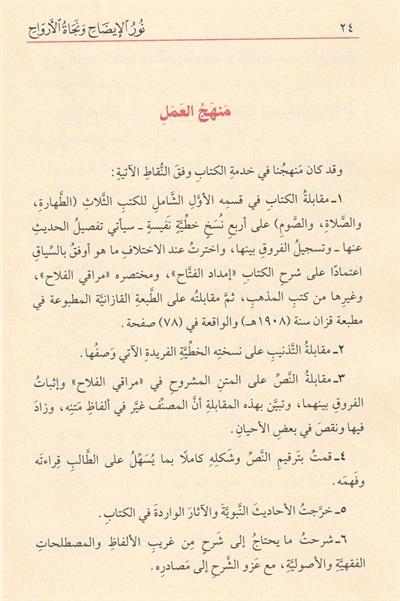 ٢٤ نُورُ الإيضَاحِ وَنَجَاةُ الأَرْوَاحِ
مَنهَجُ العَمَلِ
وقد كان مَنهجُنا في خدمةِ الكتابِ وفقَ النُّقاطِ الآتيةِ:
١ـ مقابلةُ الكتابِ في قسمِه الأوَّلِ الشَّاملِ للكتبِ الثلاثِ (الطَّهارةِ،
والصَّلاةِ، والصَّومِ) على أربعِ نُسَخٍ خطيَّةٍ نَفيسةٍ ـ سيأتي تفصيلُ الحديثِ
عنها ـ وتسجيلُ الفروقِ بينها، واخترتُ عند الاختلافِ ما هو أوفقُ بالسِّياقِ
اعتمادًا على شرحِ الكتابِ «إمداد الفتَّاح»، ومختصره «مراقي الفلاح»،
وغيرِها من كتبِ المذهبِ، ثمَّ مقابلتُه على الطَّبعةِ القازانيَّة المطبوعة في
مطبعة قزان سنة (١٩٠٨هـ) والواقعة في (٧٨) صفحة.
٢ـ مقابلةُ التَّذنيبِ على نسختِه الخطيَّةِ الفريدةِ الآتي وَصفُها.
٣ـ مقابلةُ النَّصِّ على المتنِ المشروحِ في «مراقي الفلاح» وإثباتُ
الفروقِ بينهما، وتبيَّن بهذه المقابلةِ أنَّ المصنِّف غيَّر في ألفاظِ مَتنِه، وزادَ
فيها ونقصَ في بعضِ الأحيانِ.
٤ـ قمتُ بترقيمِ النَّصِّ وشَكلِه كاملًا بما يُسَهِّلُ على الطَّالبِ قِراءتَه
وفَهمَه.
٥ ـ خرَّجتُ الأحاديثَ النَّبويَّةَ والآثارَ الواردةَ في الكتابِ.
٦ـ شرحتُ ما يحتاجُ إلى شَرحٍ مِن غريبِ الألفاظِ والمصطلحاتِ
الفقهيَّةِ والأصوليَّةِ، مع عَزوِ الشَّرحِ إلى مَصادرِه.